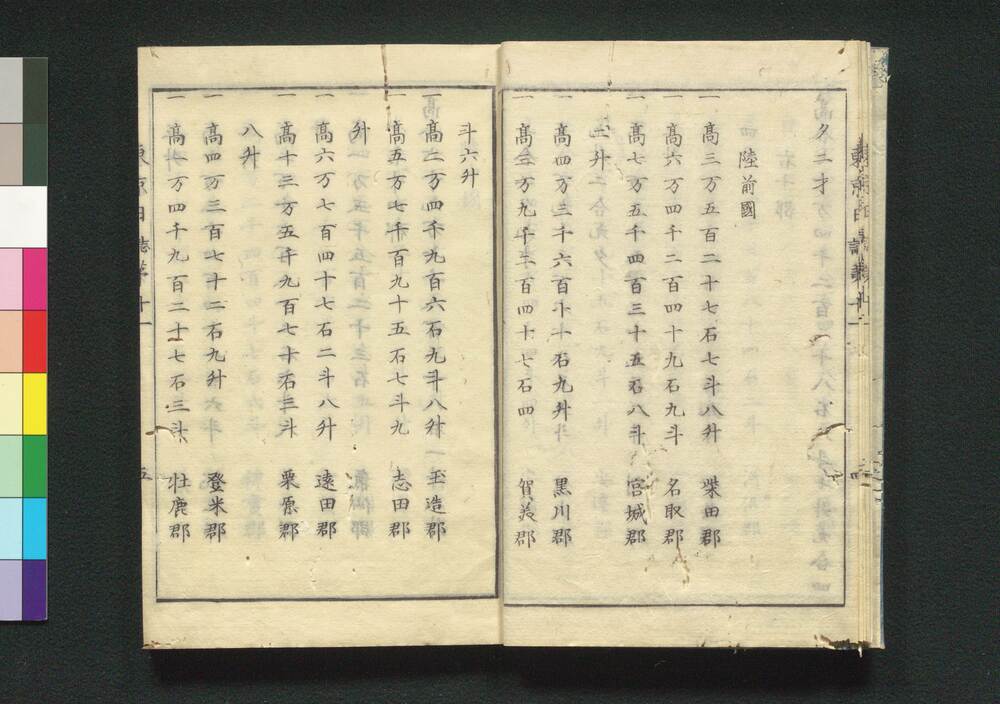 夕二才
陸前國
一高三万五百二十七石七斗八升 柴田郡
一高六万四千二百四十九石九斗 名取郡
一高七万五千四百三十五石八斗 宮城郡
二升
一高四万三千六百十石九舛 黒川郡
一高三万九千二百四十七石四 賀美郡
斗六升
一高二万四千九百六石九斗八升 玉造郡
一高五万七千百九十五石七斗九 志田郡
升
一高六万七百四十七石二斗八升 遠田郡
一高十三万五千九百七十石三斗 栗原郡
八升
一高四万三百七十二石九升 登米郡
一高二万四千九百二十七石三斗 牡鹿郡
東京日誌第十一 五